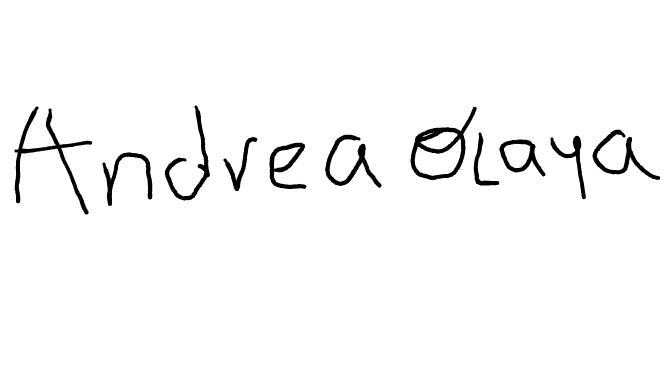 Andrea Olaya